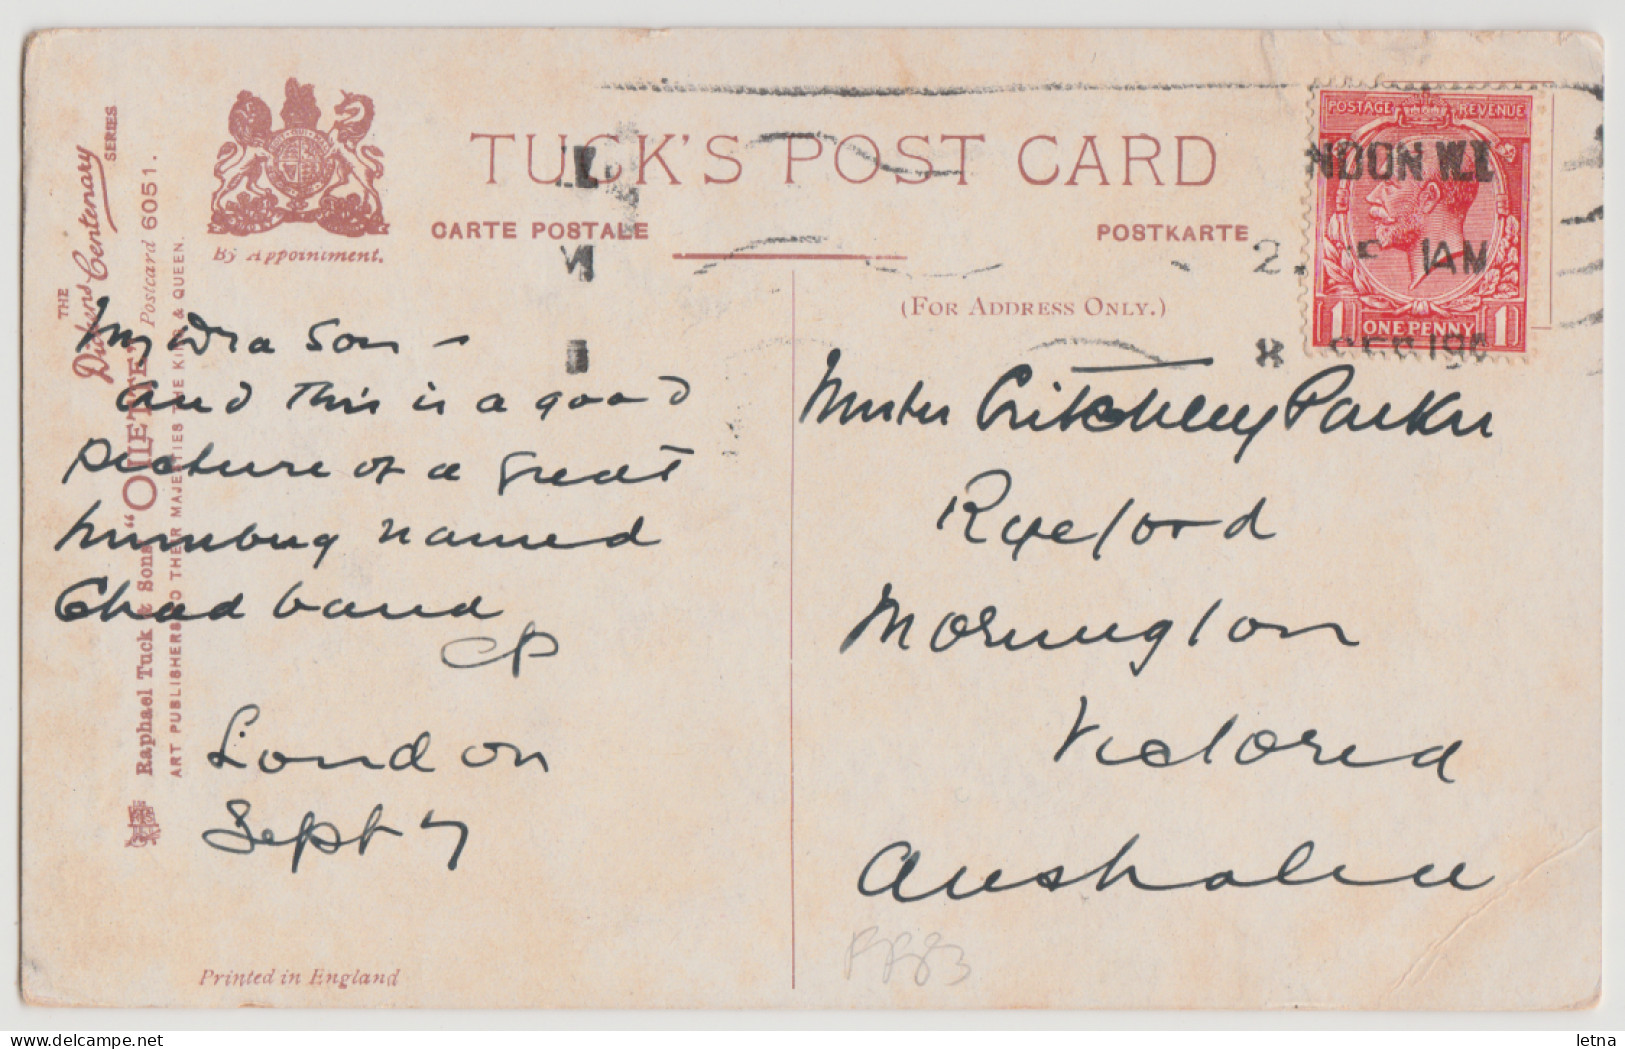 TUCK'S POST CARD
CARTE POSTALE
POSTKARTE
By Appointment.
(FOR ADDRESS ONLY.)
THE
Dickens Centenary
SERIES
Raphael Tuck & Sons' "OILETTE" Postcard 6051.
ART PUBLISHERS TO THEIR MAJESTIES THE KING & QUEEN.
POSTAGE REVENUE
NDON W.1
1AM
1 ONE PENNY 1
My Dear Son –
and this is a good
picture of a great
humbug named
Chadband
CP
London
Sept 7
Printed in England
Master Critchley Parker
Ryeford
Mornington
Victoria
Australia
PP83
letna